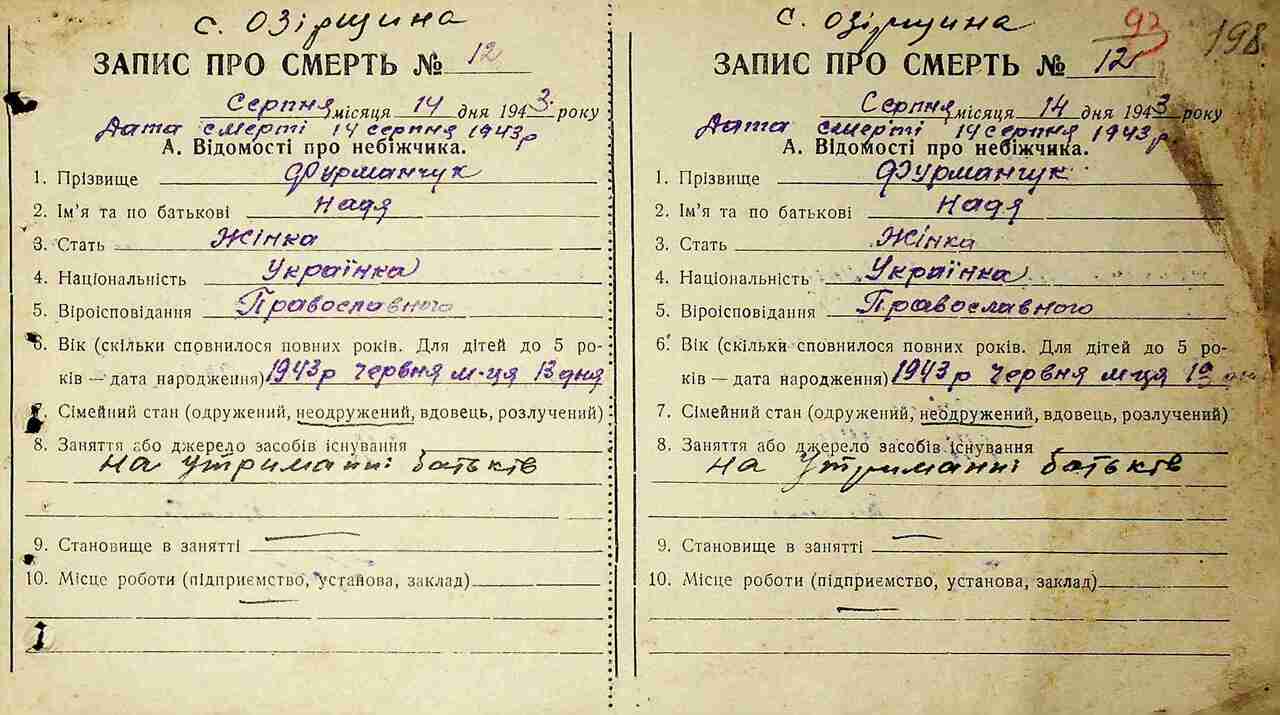 с. Озірщина
ЗАПИС ПРО СМЕРТЬ № 12
Серпня місяця 14 дня 1943 року
Дата смерті 14 серпня 1943 р
А. Відомості про небіжчика.
1. Прізвище Фурманчук
2. Ім'я та по батькові Надя
3. Стать Жінка
4. Національність Українка
5. Віроісповідання Православного
6. Вік (скільки сповнилося повних років. Для дітей до 5 ро-
ків — дата народження) 1943 р червня м-ця 13 дня
7. Сімейний стан (одружений, неодружений, вдовець, розлучений)
8. Заняття або джерело засобів існування
на утриманні батьків
9. Становище в занятті —
10. Місце роботи (підприємство, установа, заклад)
—
с. Озірщина 93 198
ЗАПИС ПРО СМЕРТЬ № 12
Серпня місяця 14 дня 1943 року
Дата смерті 14 серпня 1943 р
А. Відомості про небіжчика.
1. Прізвище Фурманчук
2. Ім'я та по батькові Надя
3. Стать Жінка
4. Національність Українка
5. Віроісповідання Православного
6. Вік (скільки сповнилося повних років. Для дітей до 5 ро-
ків — дата народження) 1943 р червня м-ця 13
7. Сімейний стан (одружений, неодружений, вдовець, розлучений)
8. Заняття або джерело засобів існування
на утриманні батьків
9. Становище в занятті —
10. Місце роботи (підприємство, установа, заклад)
—